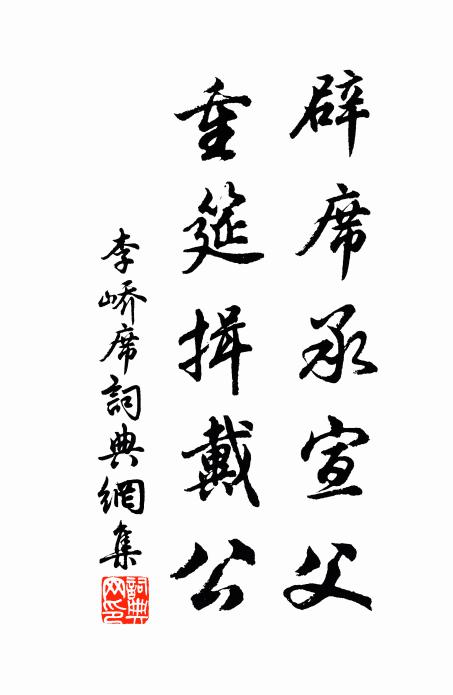 辟席承宣父
重筵揖戴公
李嶠席詞典網集
詞典网印